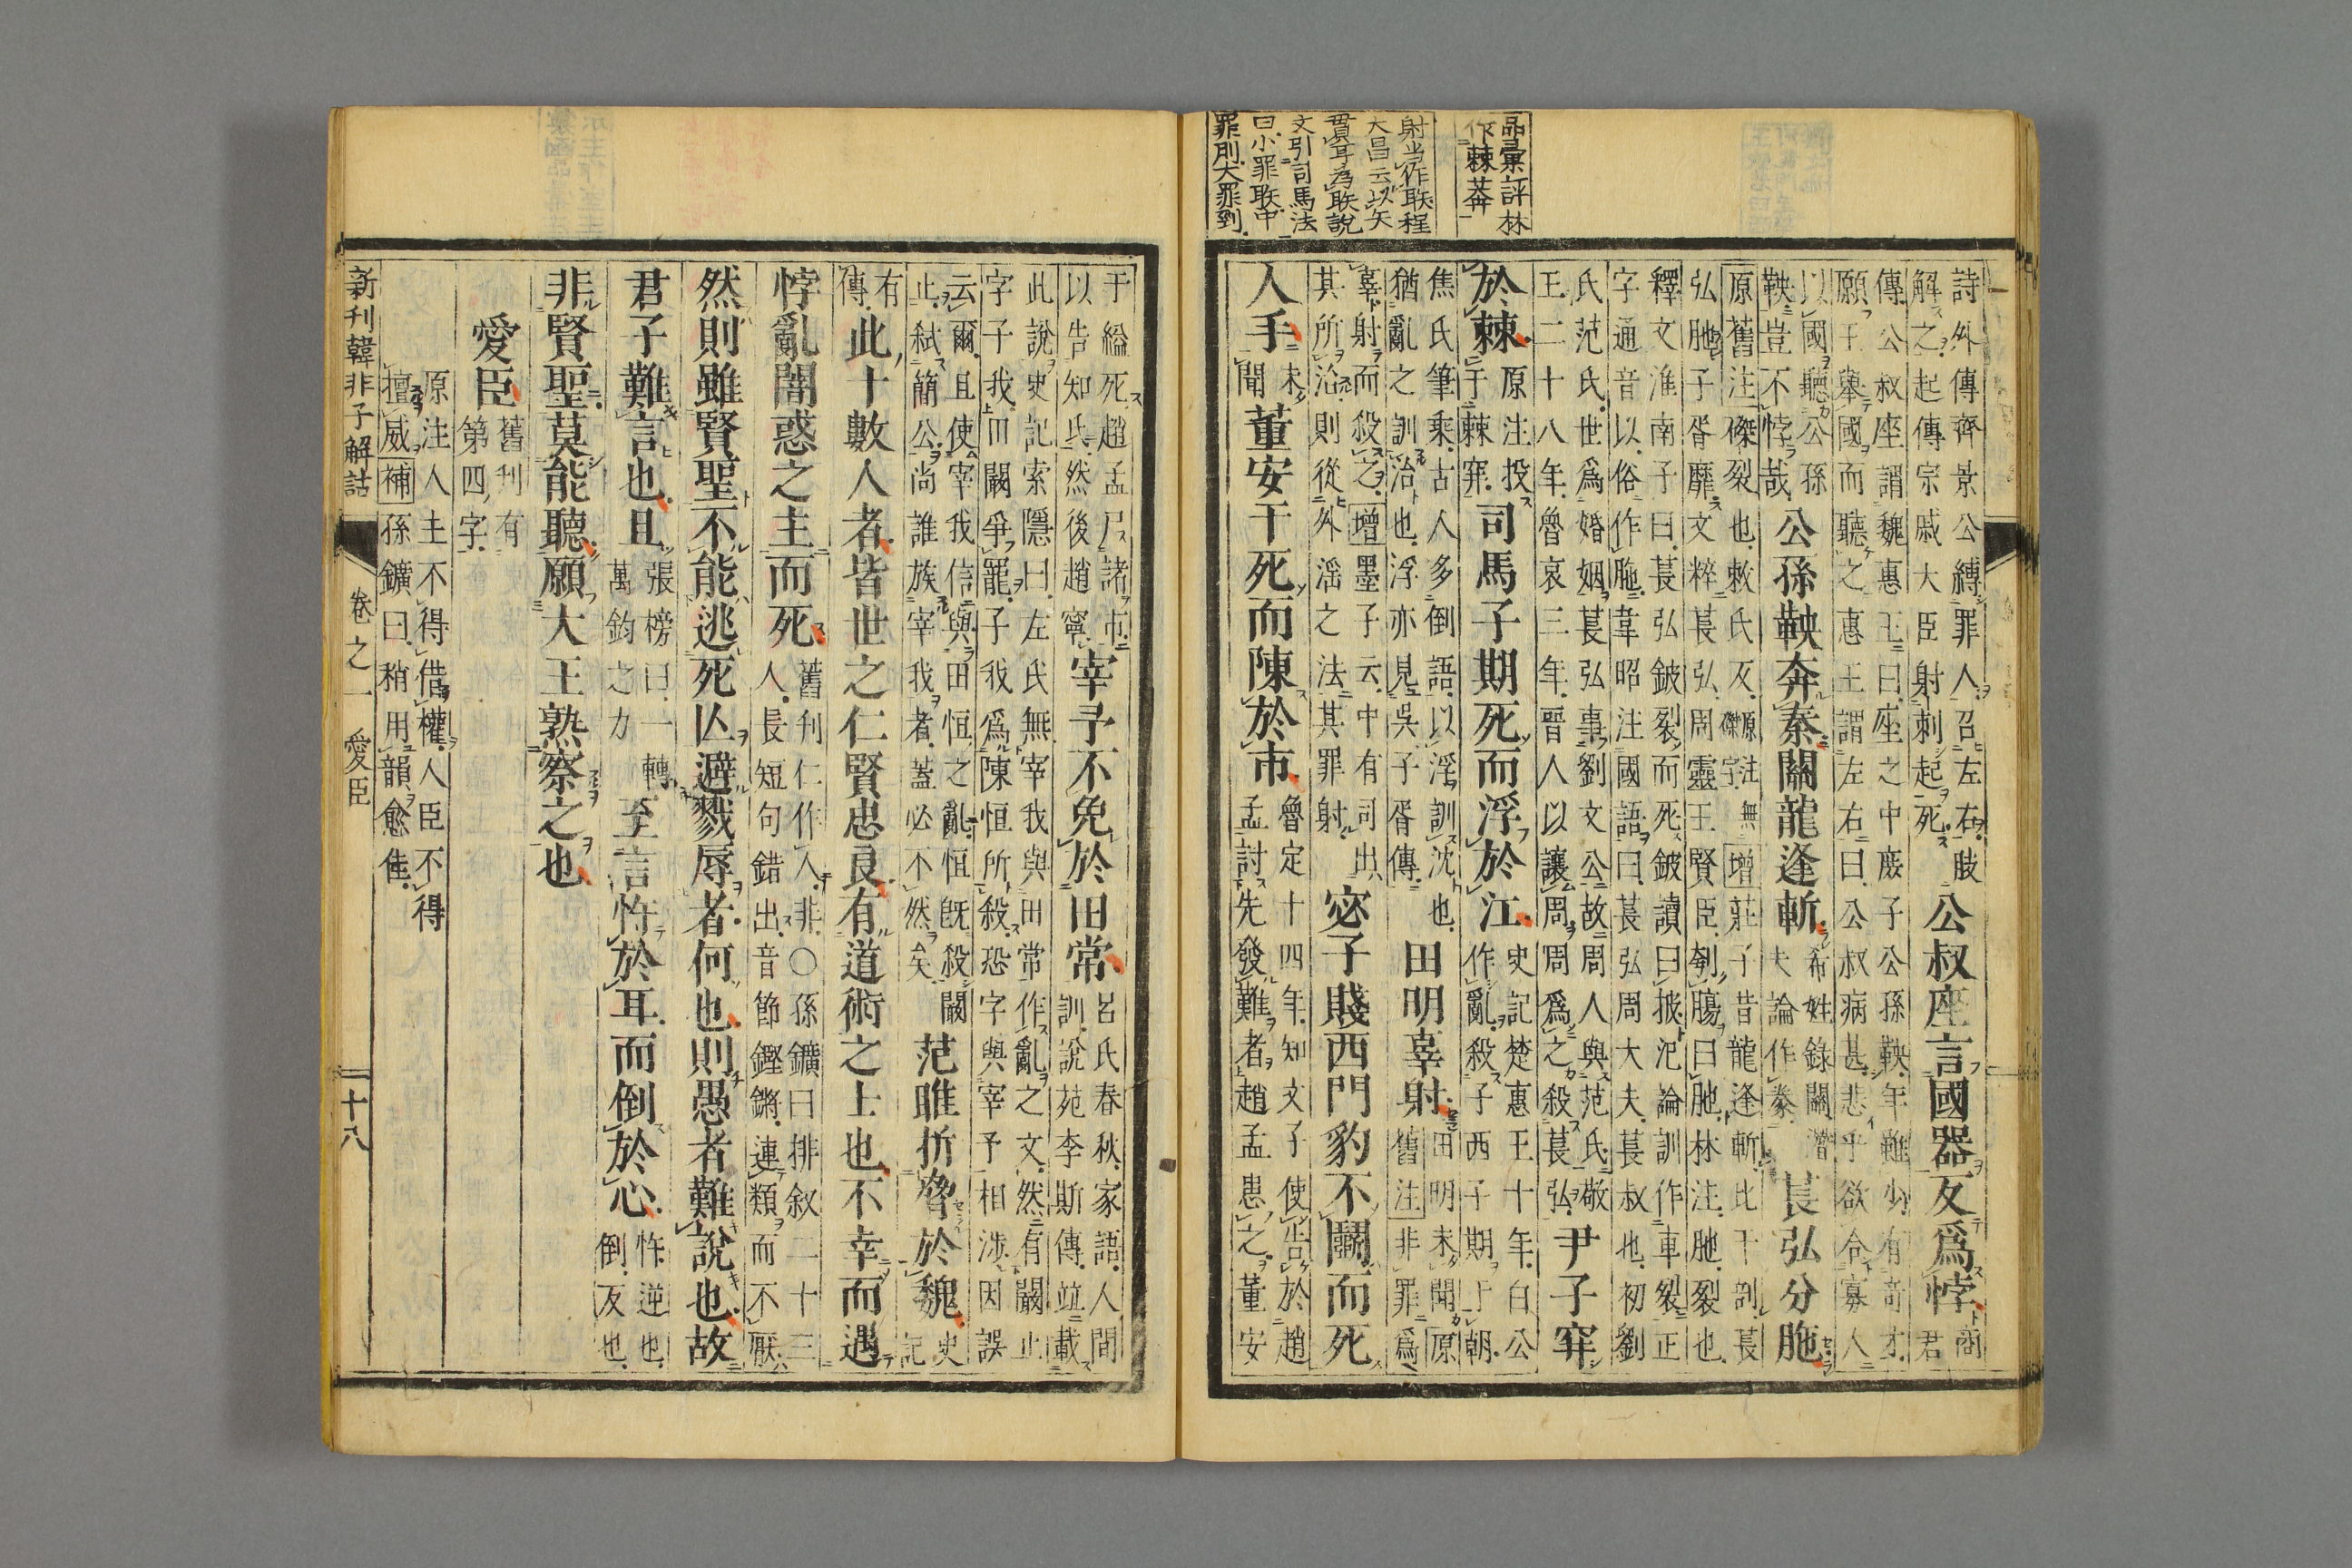 品彙評林
作棘莾
射当作䀼程
大昌云以矢
貫耳為䀼說
文引司馬法
曰小罪䀼中
罪刖大罪剄
詩外傳齊景公縛罪人召左右肢
解之起傳宗戚大臣射刺起死
公叔座言國器反爲悖
商
君
傳公叔座謂魏惠王曰座之中庶子公孫鞅年雖少有奇才
願王舉國而聽之惠王謂左右曰公叔病甚悲乎欲令寡人
以國聽公孫
鞅豈不悖哉
公孫鞅奔秦關龍逢斬
希姓錄關潛
夫論作豢
萇弘分胣
原舊注磔裂也敕氏反原注磔字無增莊子昔龍逢斬比干剖萇
弘胣子胥靡文粹萇弘周靈王賢臣刳腸曰胣林注胣裂也
釋文淮南子曰萇弘鈹裂而死鈹讀曰披氾論訓作車裂正
字通音以俗作胣韋昭注國語曰萇弘周大夫萇叔也初劉
氏范氏世爲婚姻萇弘事劉文公故周人與范氏敬
王二十八年魯哀三年晉人以讓周周爲之殺萇弘
尹子穽
於棘
原注投
于棘穽
司馬子期死而浮於江
史記楚惠王十年白公
作亂殺子西子期于朝
焦氏筆乘古人多倒語以浮訓沈也
猶亂之訓治也浮亦見吳子胥傳
田明辜射
田明未聞原
舊注非罪爲
辜射而殺之增墨子云中有司出
其所治則從外淫之法其罪射
宓子賤西門豹不鬭而死
人手
未
聞
董安于死而陳於市
魯定十四年知文子使告於趙
孟討先發難者趙孟患之董安
于縊死趙孟尸諸市
以告知氏然後趙寧
宰予不免於田常
呂氏春秋家語人間
訓說苑李斯傳竝載
此說史記索隱曰左氏無宰我與田常作亂之文然有闞止
字子我田闞爭寵子我爲陳恒所殺恐字與宰予相涉因誤
云爾且使宰我信與田恒之亂恒旣殺闞
止弒簡公尚誰族宰我者蓋必不然矣
范雎折脅於魏
史
記
有
傳
此十數人者皆世之仁賢忠良有道術之士也不幸而遇
悖亂闇惑之主而死
舊刊仁作人非○孫鑛曰排叙二十三
人長短句錯出音節鏗鏘連類而不厭
然則雖賢聖不能逃死亾避戮辱者何也則愚者難說也故
君子難言也且
張榜曰一轉
萬鈞之力
至言忤於耳而倒於心
忤逆也
倒反也
非賢聖莫能聽願大王熟察之也
愛臣
舊刊有
第四字
原注人主不得借權人臣不得
擅威補孫鑛曰稍用韻愈佳
新刊韓非子解詁
卷之一
愛臣
十八